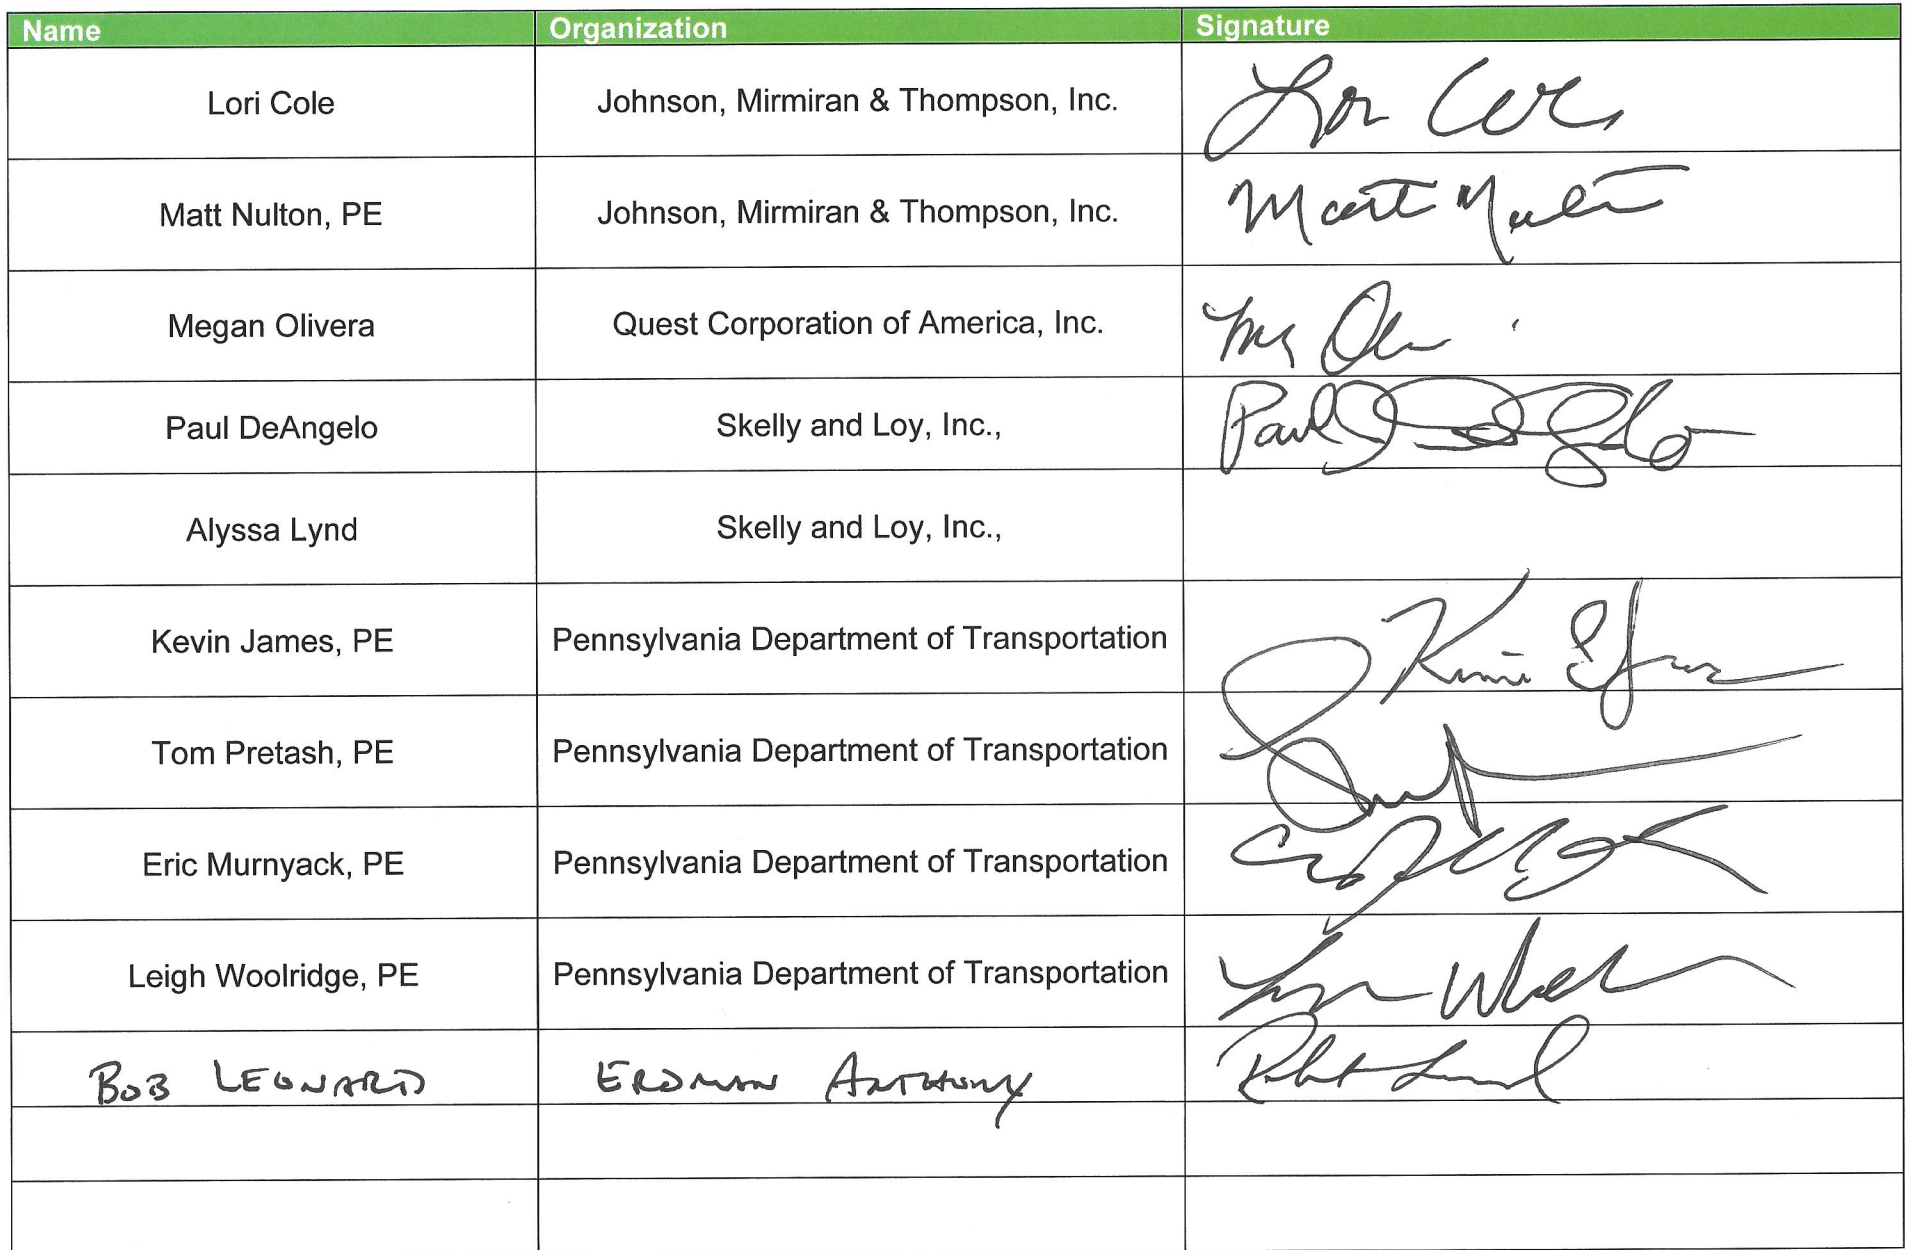 Name Organization Signature
Lori Cole Johnson, Mirmiran & Thompson, Inc. Lori Cole
Matt Nulton, PE Johnson, Mirmiran & Thompson, Inc. Matt Nulton
Megan Olivera Quest Corporation of America, Inc.
Paul DeAngelo Skelly and Loy, Inc., Paul DeAngelo
Alyssa Lynd Skelly and Loy, Inc.,
Kevin James, PE Pennsylvania Department of Transportation
Tom Pretash, PE Pennsylvania Department of Transportation
Eric Murnyack, PE Pennsylvania Department of Transportation
Leigh Woolridge, PE Pennsylvania Department of Transportation
BOB LEONARD ERDMAN ANTHONY